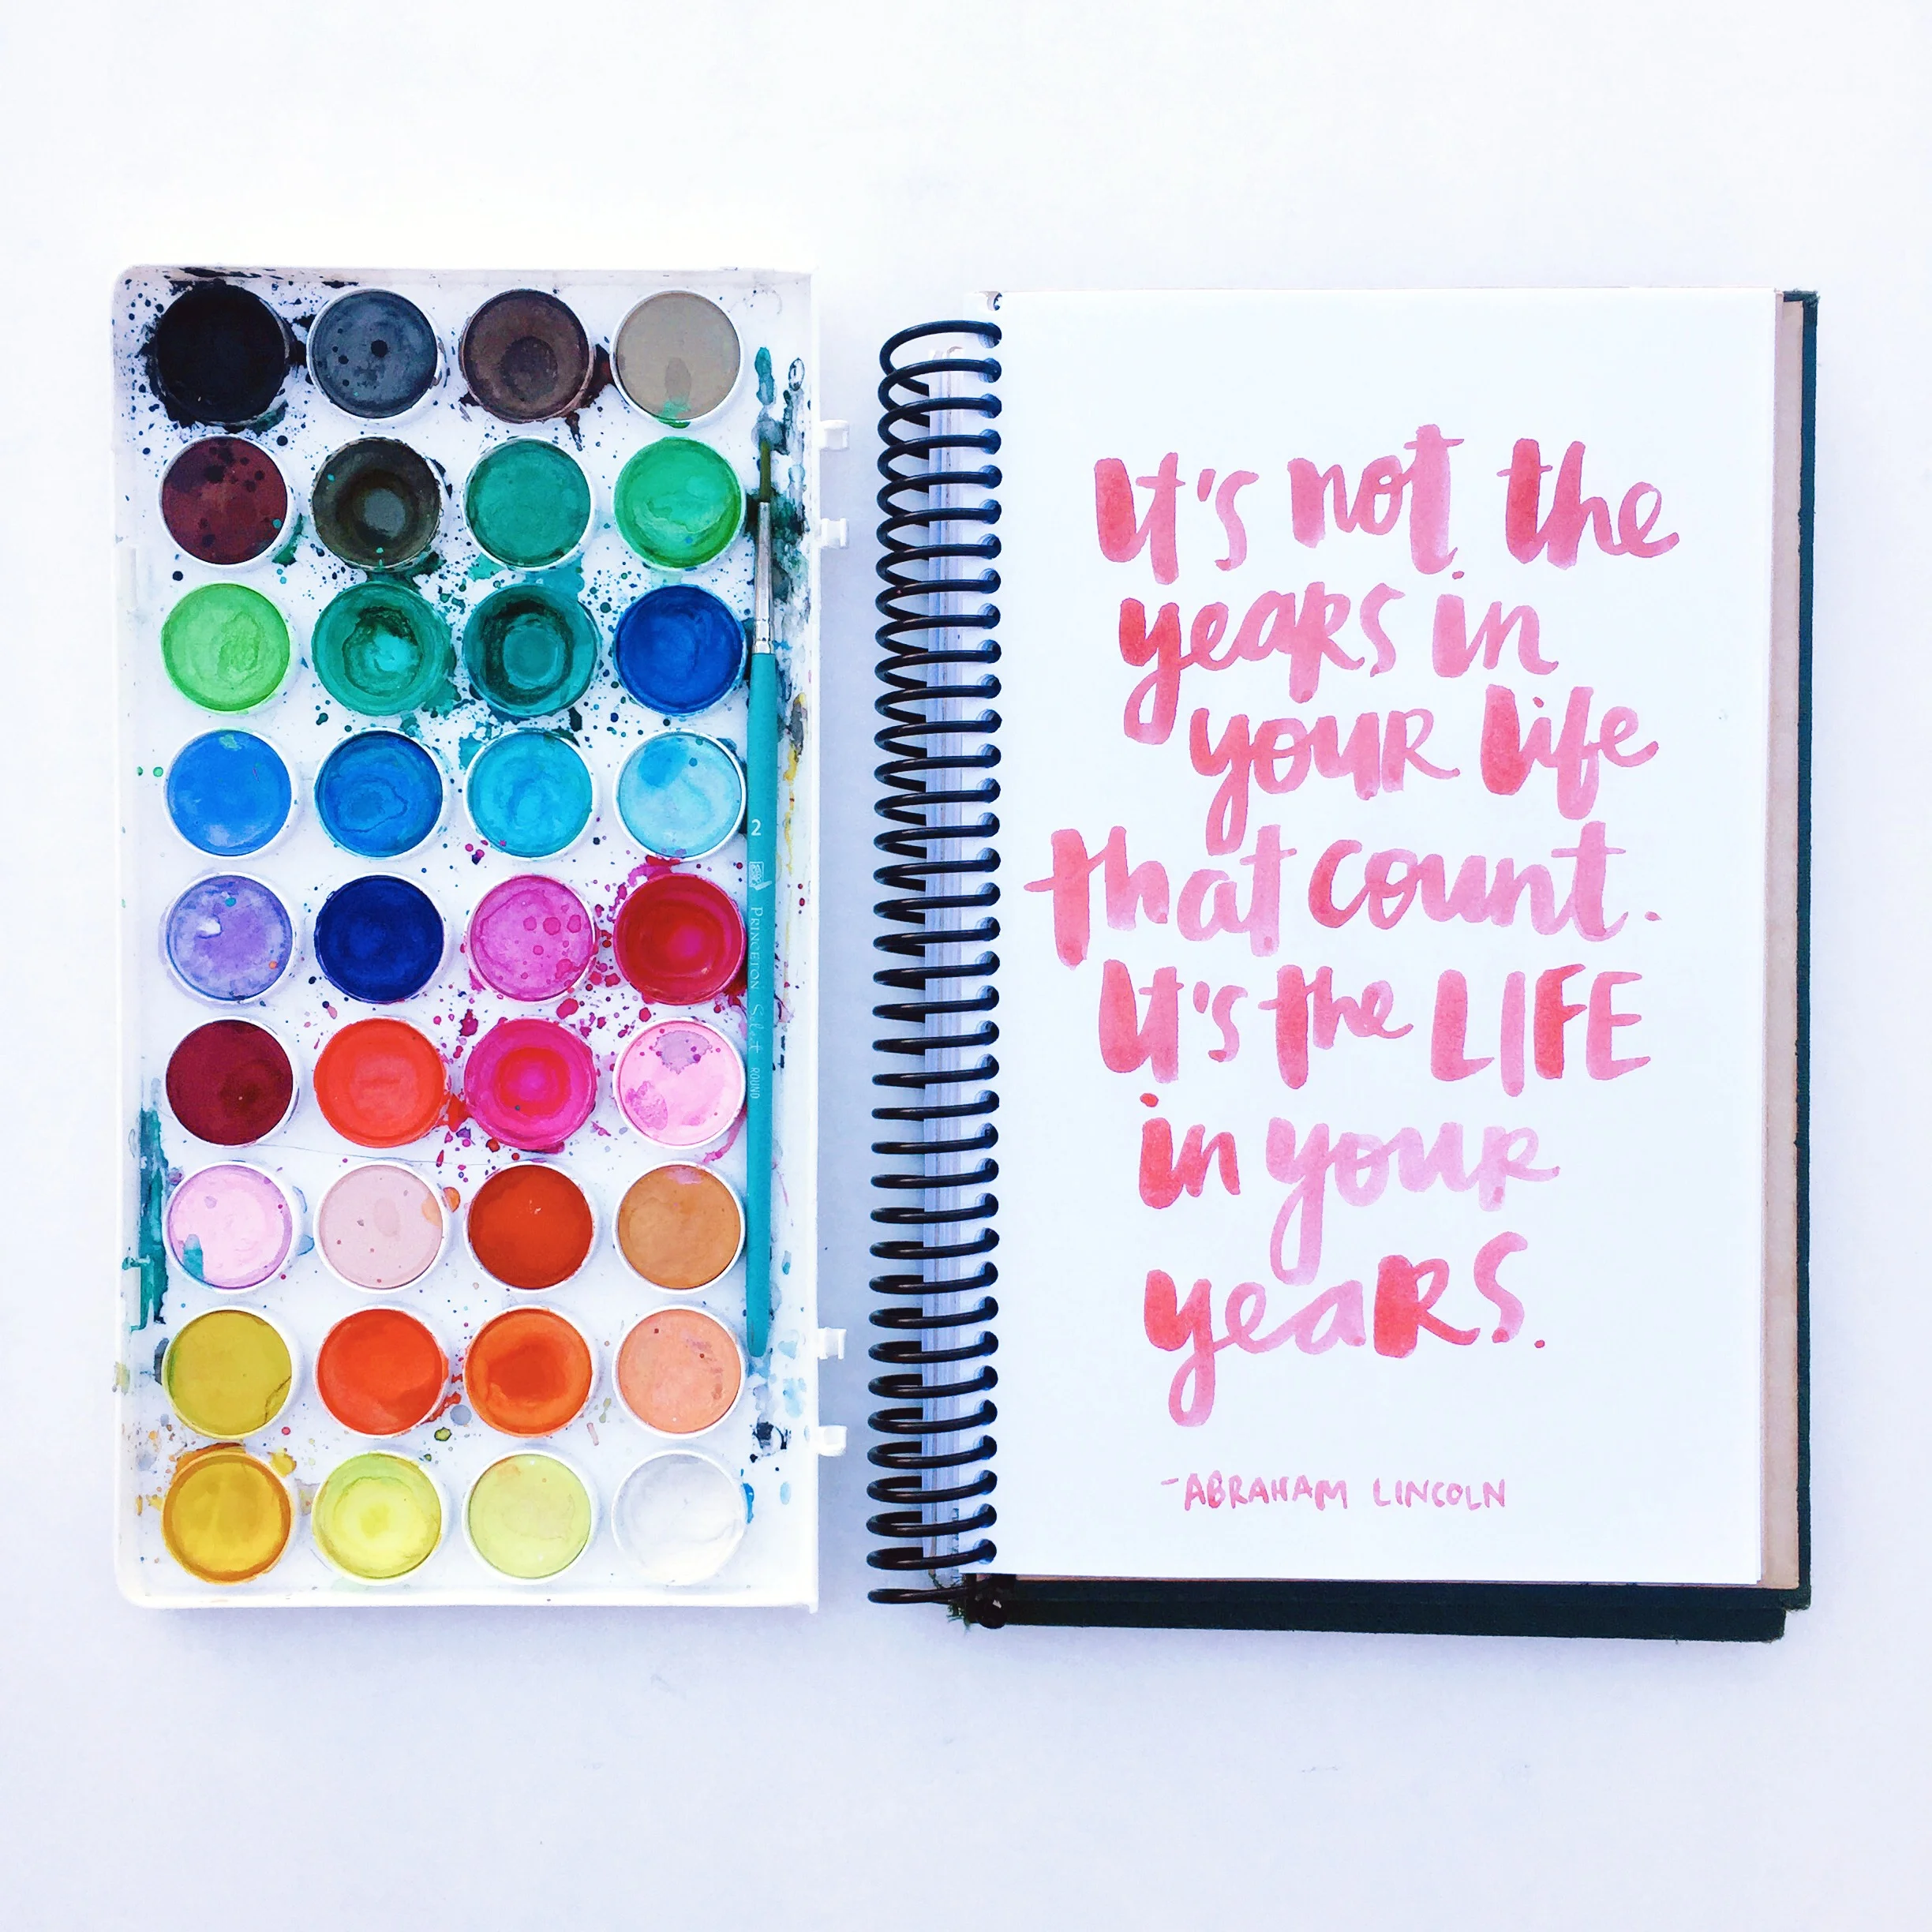 2 PRINCETON Select ROUND
It's not the
years in
your life
that count.
It's the LIFE
in your
years.
-ABRAHAM LINCOLN